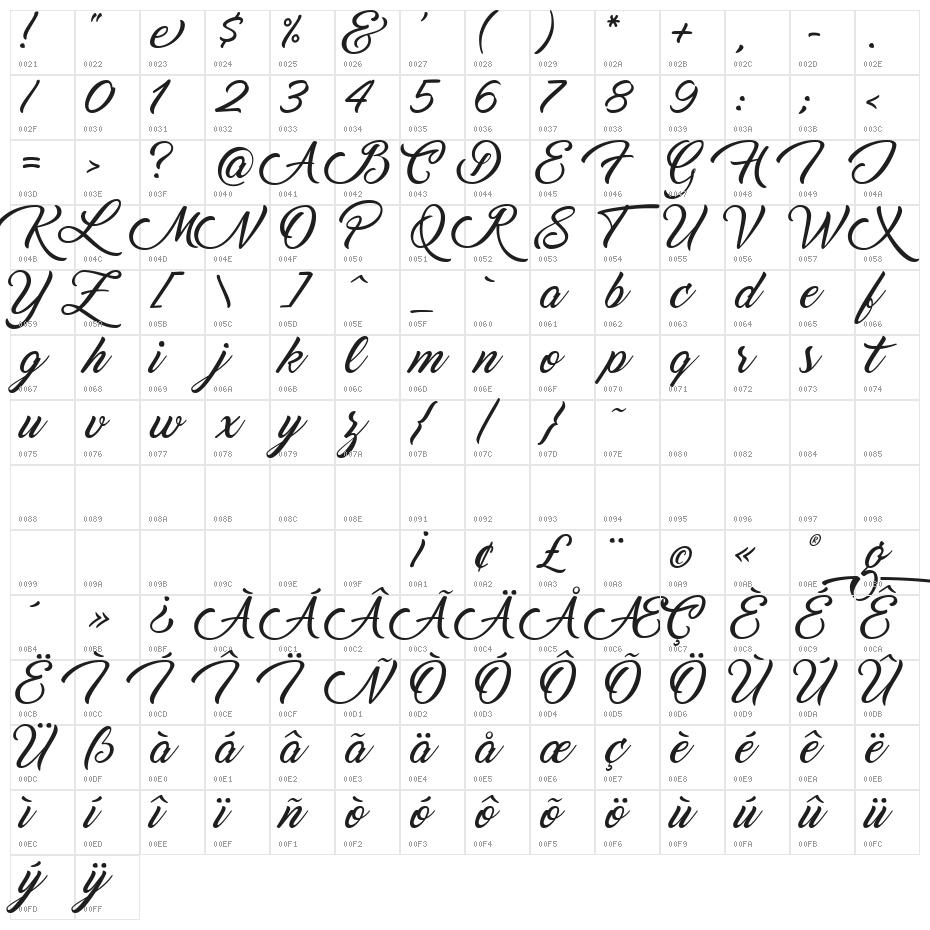 ! " e $ % & ' ( ) * + , - .
0021 0022 0023 0024 0025 0026 0027 0028 0029 002A 002B 002C 002D 002E
/ 0 1 2 3 4 5 6 7 8 9 : ; <
002F 0030 0031 0032 0033 0034 0035 0036 0037 0038 0039 003A 003B 003C
= > ? @ A B C D E F G H I J
003D 003E 003F 0040 0041 0042 0043 0044 0045 0046 0047 0048 0049 004A
K L M N O P Q R S T U V W X
004B 004C 004D 004E 004F 0050 0051 0052 0053 0054 0055 0056 0057 0058
Y Z [ \ ] ^ _ ` a b c d e f
0059 005A 005B 005C 005D 005E 005F 0060 0061 0062 0063 0064 0065 0066
g h i j k l m n o p q r s t
0067 0068 0069 006A 006B 006C 006D 006E 006F 0070 0071 0072 0073 0074
u v w x y z { | } ~
0075 0076 0077 0078 0079 007A 007B 007C 007D 007E 0080 0082 0084 0085
0088 0089 008A 008B 008C 008E 0091 0092 0093 0094 0095 0096 0097 0098
¡ ¢ £ ¨ © « ®
0099 009A 009B 009C 009E 009F 00A1 00A2 00A3 00A8 00A9 00AB 00AE
´ » ¿ À Á Â Ã Ä Å Æ Ç È É Ê
00B4 00BB 00BF 00C0 00C1 00C2 00C3 00C4 00C5 00C6 00C7 00C8 00C9 00CA
Ë Ì Í Î Ï Ñ Ò Ó Ô Õ Ö Ù Ú Û
00CB 00CC 00CD 00CE 00CF 00D1 00D2 00D3 00D4 00D5 00D6 00D9 00DA 00DB
Ü ß à á â ã ä å æ ç è é ê ë
00DC 00DF 00E0 00E1 00E2 00E3 00E4 00E5 00E6 00E7 00E8 00E9 00EA 00EB
ì í î ï ñ ò ó ô õ ö ù ú û ü
00EC 00ED 00EE 00EF 00F1 00F2 00F3 00F4 00F5 00F6 00F9 00FA 00FB 00FC
ý ÿ
00FD 00FF